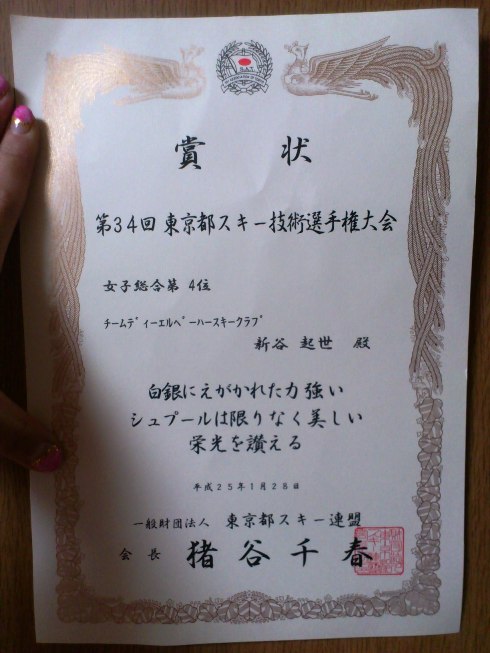 賞状
第34回 東京都スキー技術選手権大会
女子総合第 4位
チームディーエルペーハースキークラブ
新谷 起世 殿
白銀にえがかれた力強い
シュプールは限りなく美しい
栄光を讃える
平成25年1月28日
一般財団法人 東京都スキー連盟
会長 猪谷千春